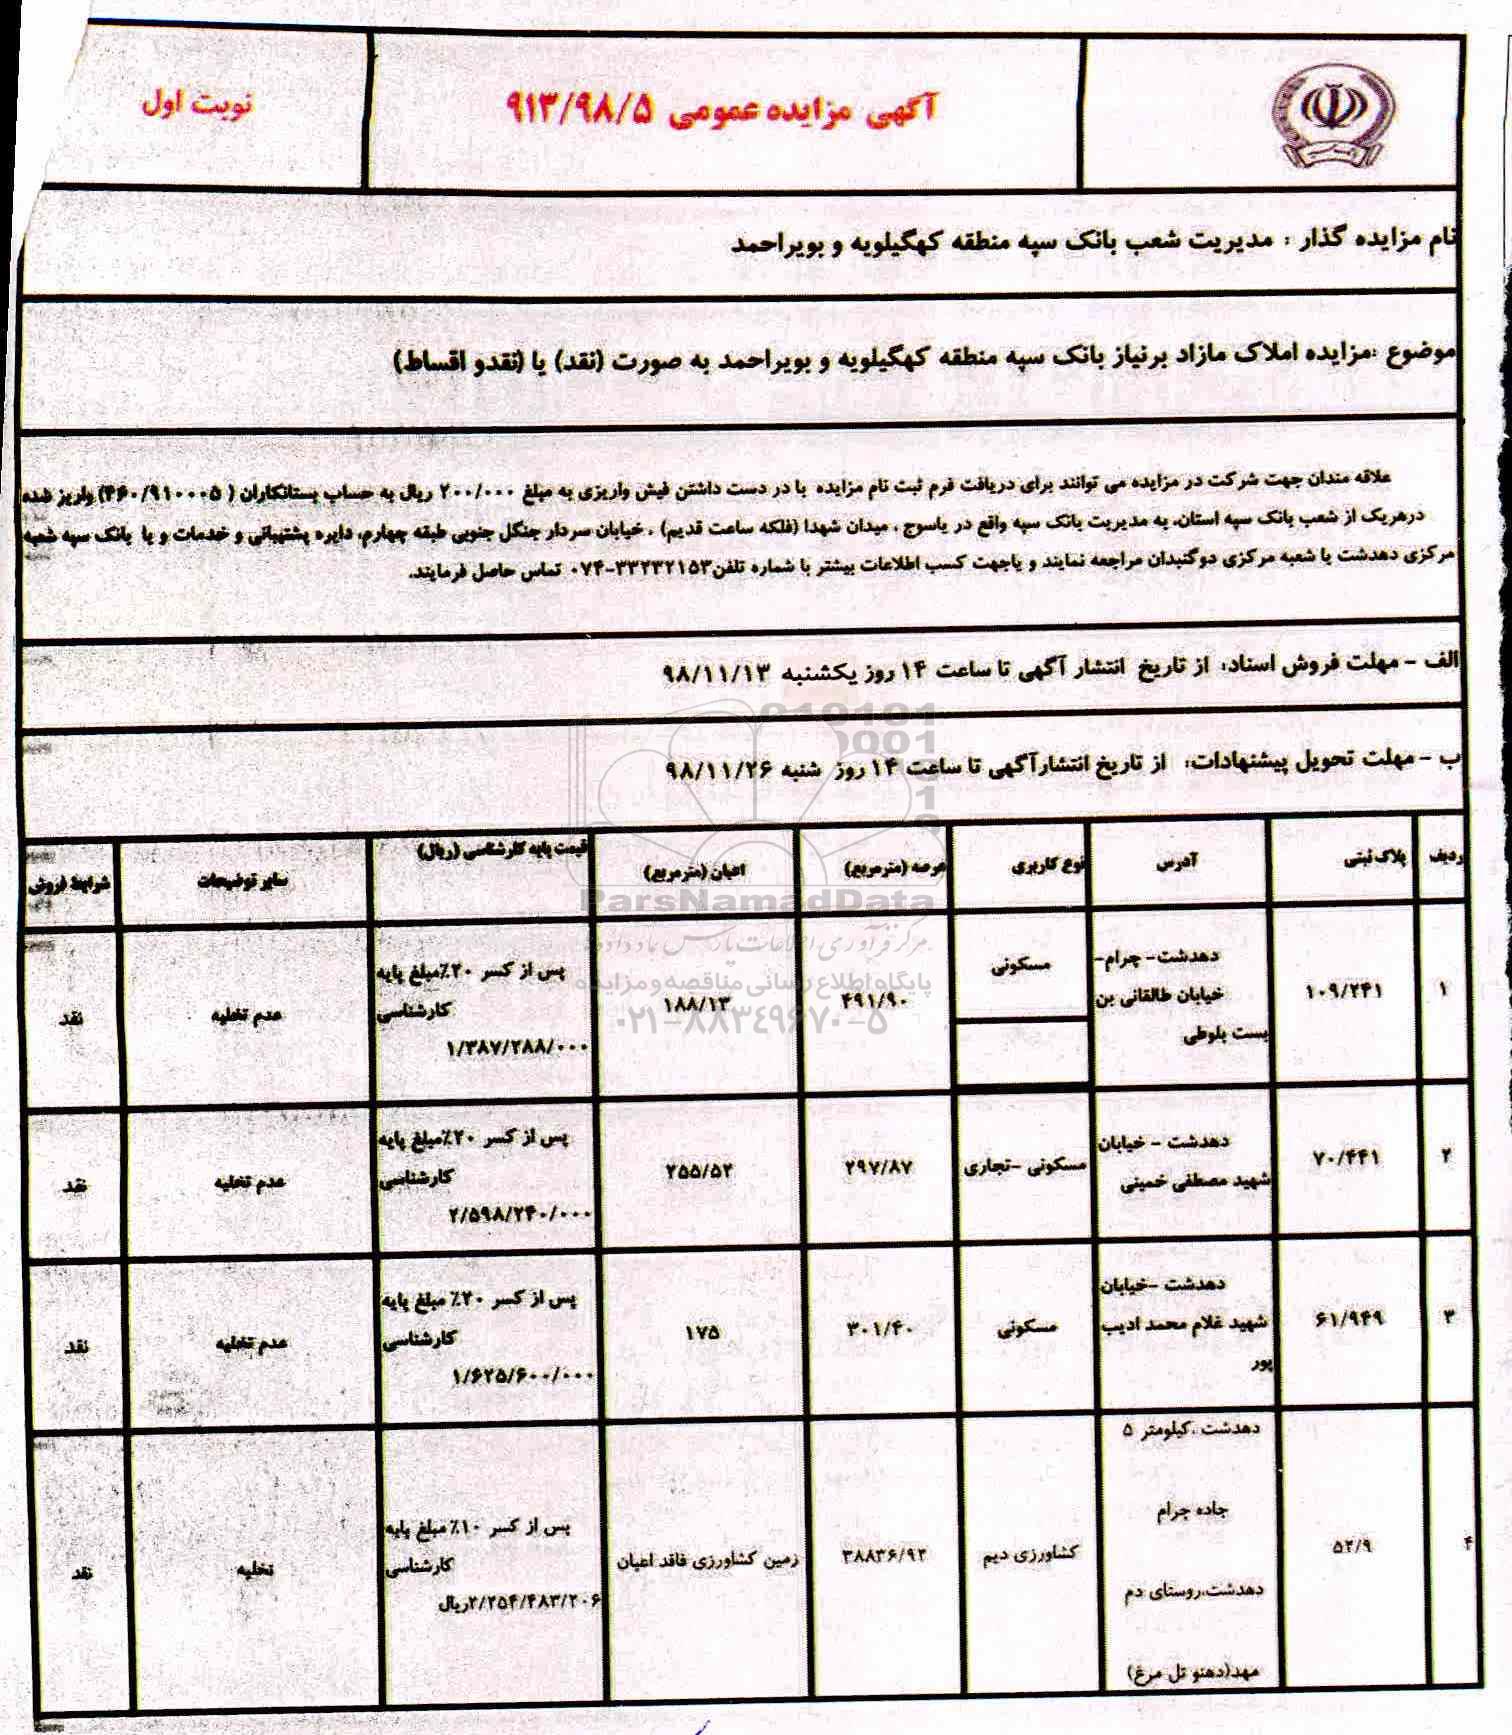 آگهی مزایده عمومی ۹۱۳/۹۸/۵
نوبت اول
نام مزایده گذار : مدیریت شعب بانک سپه منطقه کهگیلویه و بویراحمد
موضوع :مزایده املاک مازاد برنیاز بانک سپه منطقه کهگیلویه و بویراحمد به صورت (نقد) یا (نقدو اقساط)
علاقه مندان جهت شرکت در مزایده می توانند برای دریافت فرم ثبت نام مزایده با در دست داشتن فیش واریزی به مبلغ ۲۰۰/۰۰۰ ریال به حساب بستانکاران (۴۶۰/۹۱۰۰۰۵) واریز شده
درهریک از شعب بانک سپه استان، به مدیریت بانک سپه واقع در یاسوج ، میدان شهدا (فلکه ساعت قدیم) ، خیابان سردار جنگل جنوبی طبقه چهارم، دایره پشتیبانی و خدمات و یا بانک سپه شعبه
مرکزی دهدشت یا شعبه مرکزی دوگنبدان مراجعه نمایند و یاجهت کسب اطلاعات بیشتر با شماره تلفن۳۳۲۳۲۱۵۳-۰۷۴ تماس حاصل فرمایند.
الف - مهلت فروش اسناد: از تاریخ انتشار آگهی تا ساعت ۱۴ روز یکشنبه ۹۸/۱۱/۱۳
ب - مهلت تحویل پیشنهادات: از تاریخ انتشارآگهی تا ساعت ۱۴ روز شنبه ۹۸/۱۱/۲۶
ردیف پلاک ثبتی آدرس نوع کاربری عرصه (مترمربع) اعیان (مترمربع) قیمت پایه کارشناسی (ریال) سایر توضیحات شرایط فروش
۱ ۱۰۹/۲۴۱
دهدشت- چرام-
خیابان طالقانی بن
بست بلوطی
مسکونی ۴۹۱/۹۰ ۱۸۸/۱۳
پس از کسر ۲۰٪مبلغ پایه
کارشناسی
۱/۳۸۷/۲۸۸/۰۰۰
عدم تخلیه نقد
۲ ۷۰/۴۴۱
دهدشت - خیابان
شهید مصطفی خمینی
مسکونی -تجاری ۲۹۷/۸۷ ۲۵۵/۵۲
پس از کسر ۲۰٪مبلغ پایه
کارشناسی
۲/۵۹۸/۲۴۰/۰۰۰
عدم تخلیه نقد
۳ ۶۱/۹۴۹
دهدشت -خیابان
شهید غلام محمد ادیب
پور
مسکونی ۳۰۱/۴۰ ۱۷۵
پس از کسر ۲۰٪ مبلغ پایه
کارشناسی
۱/۶۲۵/۶۰۰/۰۰۰
عدم تخلیه نقد
۴ ۵۲/۹
دهدشت ،کیلومتر ۵
جاده چرام
دهدشت،روستای دم
مهد(دهنو تل مرغ)
کشاورزی دیم ۳۸۸۳۶/۹۲ زمین کشاورزی فاقد اعیان
پس از کسر ۱۰٪ مبلغ پایه
کارشناسی
۲/۲۵۴/۴۸۳/۲۰۶ریال
تخلیه نقد
ParsNamadData
مرکز فرآوری اطلاعات پارس نماد داده ها
پایگاه اطلاع رسانی مناقصه و مزایده
۰۲۱-۸۸۳۴۹۶۷۰-۵